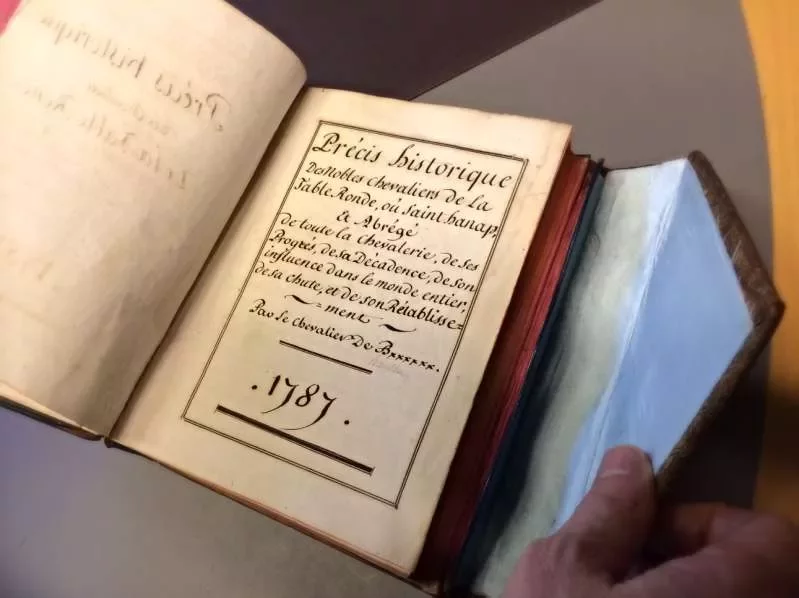 Précis historique
Des Nobles Chevaliers de La
Table Ronde, où Saint hanap,
& Abrégé
de toute la chevalerie, de ses
Progrés, de sa Décadence, de son
influence dans le monde entier,
de sa chute, et de son Rétablisse=
ment
Par Le Chevalier De Bxxxxxx.
. 1787 .